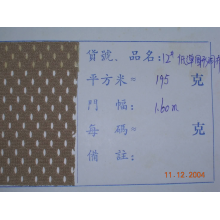 貨號、品名:12#
平方米= 195 克
門 幅: 1.60m
每 碼= 克
備 註:
11.12.2004